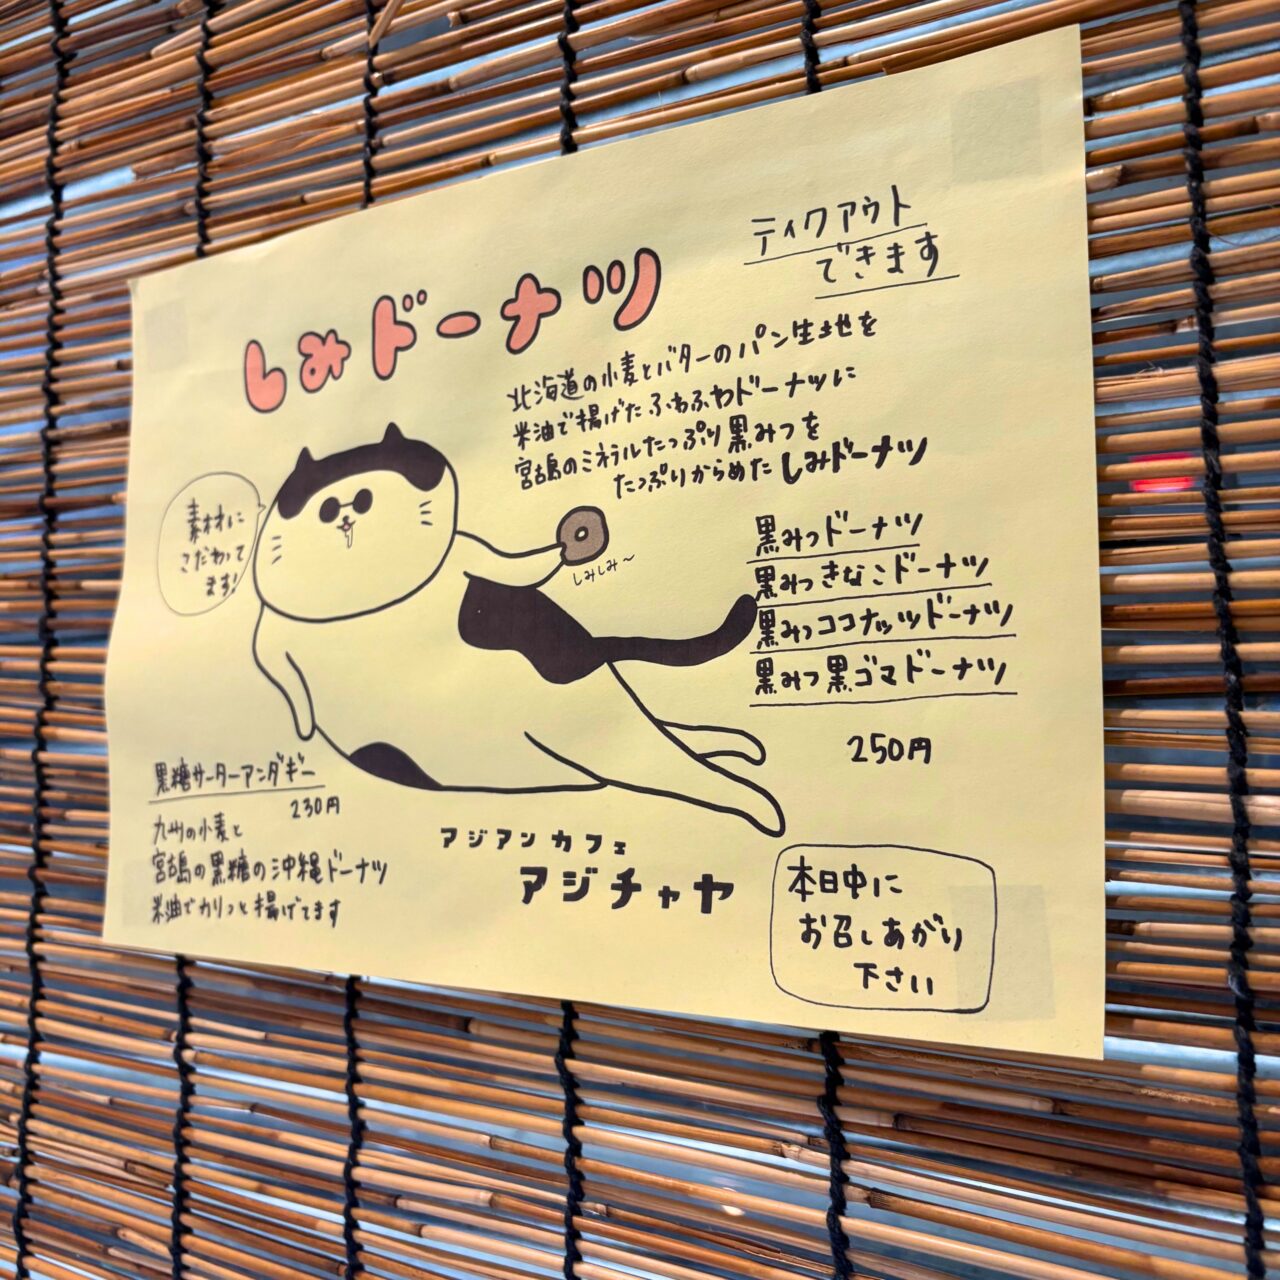 しみドーナツ
ティクアウト
できます
北海道の小麦とバターのパン生地を
米油で揚げたふわふわドーナツに
宮古島のミネラルたっぷり黒みつを
たっぷりからめたしみドーナツ
素材に
こだわって
ます!
しみしみ～
黒みつドーナツ
黒みつきなこドーナツ
黒みつココナッツドーナツ
黒みつ黒ゴマドーナツ
250円
黒糖サーターアンダギー
230円
九州の小麦と
宮古島の黒糖の沖縄ドーナツ
米油でカリっと揚げてます
アジアンカフェ
アジチャヤ
本日中に
お召しあがり
下さい